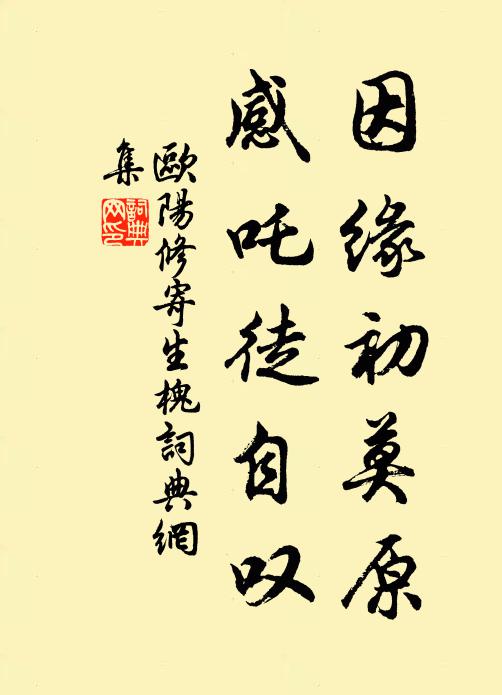 因缘初莫原
感吒徒自叹
歐陽修寄生槐詞典網
集
詞典
网印